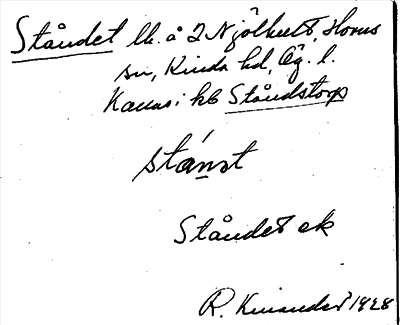 Ståndet lh. å 2 Njölhult, Horns
sn, Kinda hd, Ög. l.
Kallas i kb Ståndstorp
stånst
Ståndet ek
R. Kinander 1928